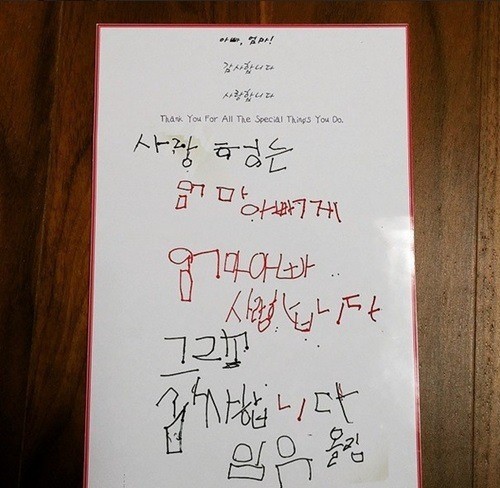 아빠, 엄마!
감사합니다
사랑합니다
Thank You For All The Special Things You Do.
사랑
엄마
엄마아빠
사랑합니다
감사합니다
올림